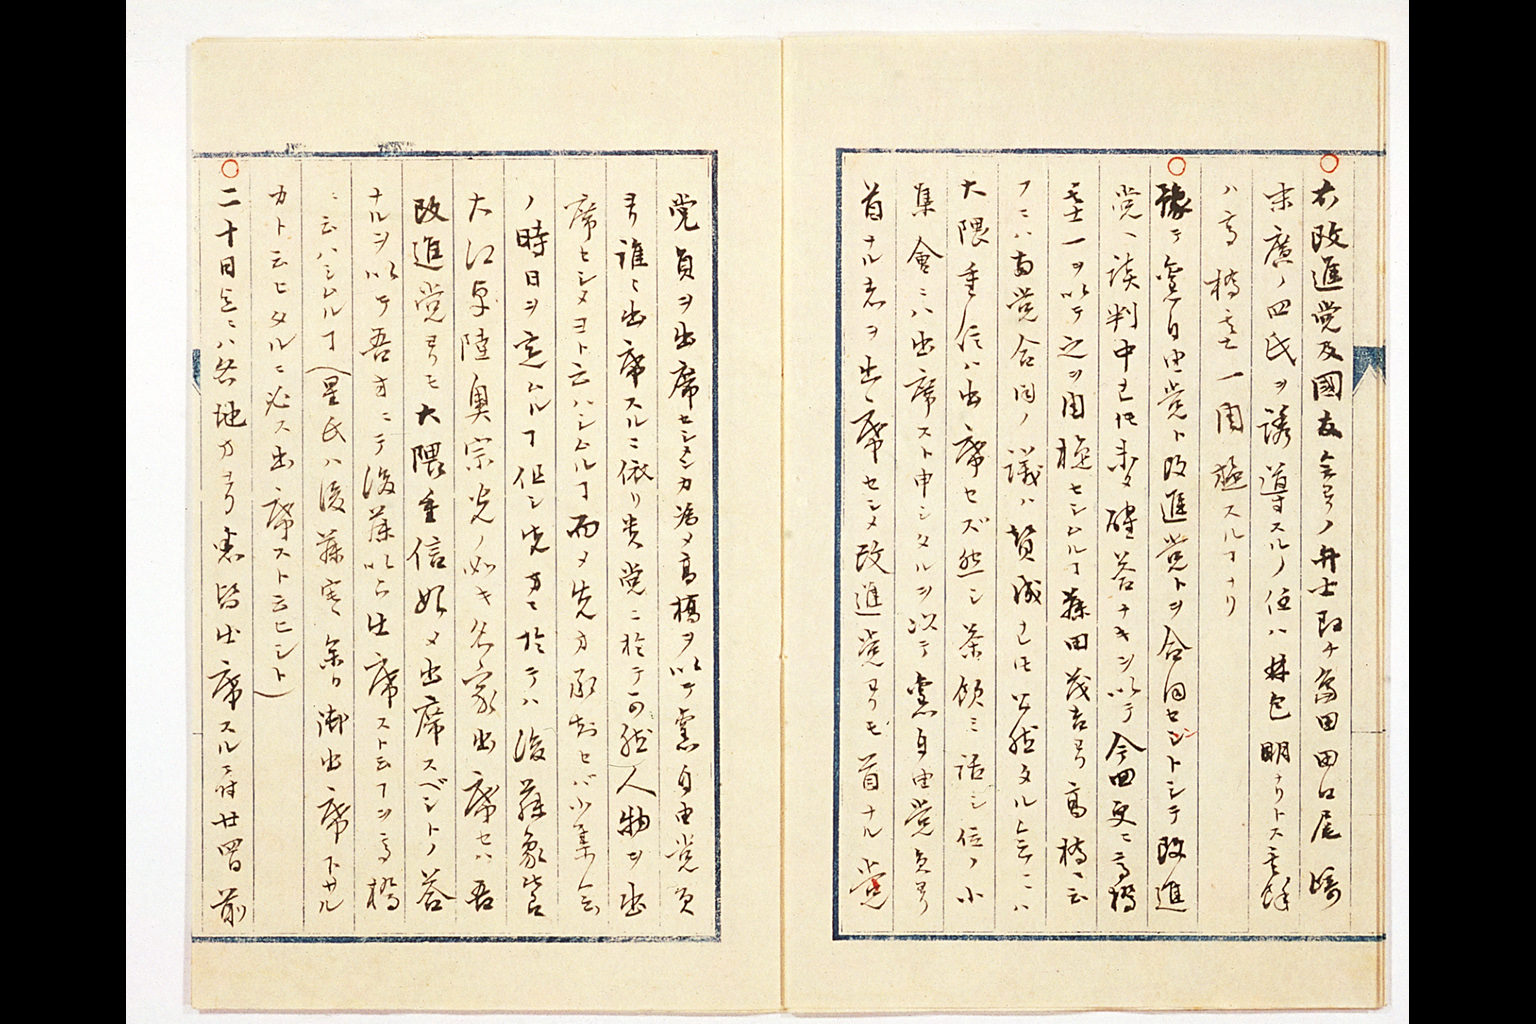 右改進党及國友会ヨリノ弁士即チ島田田口尾崎
末廣ノ四氏ヲ誘導スルノ任ハ林包明ナリトス其餘
ハ高橋基一周旋スルヿナリ
豫テ舊自由党ト改進党トヲ合同セントシテ改進
党ヘ談判中已ニ未タ確答ナキヲ以テ今回更ニ高橋
基一ヲ以テ之ヲ周旋セシムルヿ藤田茂吉ヨリ高橋ヘ云
フニハ両党合同ノ議ハ賛成已ニ公然タル会ニハ
大隈重信ハ出席セズ然シ茶飲ミ話シ位ノ小
集會ニハ出席スト申シタルヲ以テ舊自由党員ヨリ
首ナル者ヲ出席セシメ改進党ヨリモ首ナル党
党員ヲ出席センメンカ為メ高橋ヲ以テ舊自由党員
ヨリ誰ヒ出席スルニ依リ貴党ニ於テ可然人物ヲ出
席セシメヨト云ハシムルヿ而メ先方承知セバ小集会
ノ時日ヲ定ムルヿ但シ先方ニ於テハ後藤象次
大江卓陸奥宗光ノ如キ名家出席セハ吾
改進党ヨリモ大隈重信始メ出席スベシトノ答
ナルヲ以テ吾方ニテ後藤以下出席スト云フヿヲ高橋
ニ云ハシムルヿ(星氏ハ後藤ニ余日御出席下サル
カト云ヒタルニ必ス出席スト云ヒシト)
二十日迄ニハ各地方ヨリ悉皆出席スルニ付廿四日前